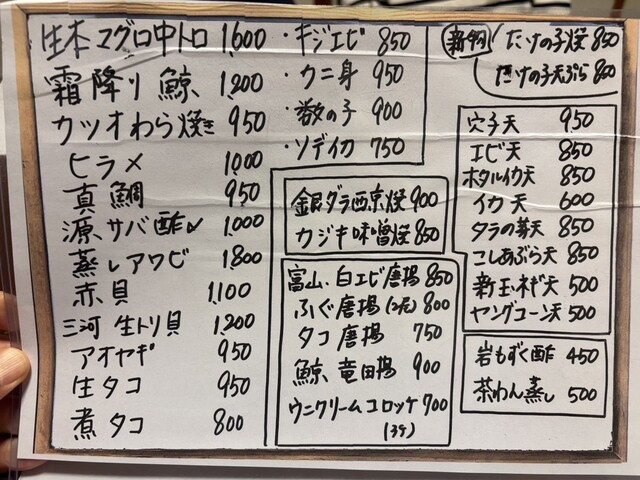 生本マグロ中トロ 1,600
霜降り鯨 1,200
カツオわら焼き 950
ヒラメ 1,000
真鯛 950
サバ酢〆 1,000
蒸しアワビ 1,800
赤貝 1,100
三河 生トリ貝 1,200
アオヤギ 950
生タコ 950
煮タコ 800
・キジエビ 850
・カニ身 950
・数の子 900
・ソデイカ 750
銀ダラ西京焼 900
カジキ味噌焼 850
富山、白エビ唐揚 850
ふぐ唐揚(2元) 800
タコ唐揚 750
鯨 竜田揚 900
ウニクリームコロッケ 700
(3ケ)
たけの子焼 850
たけの子天ぷら 800
穴子天 950
エビ天 850
ホタルイカ天 850
イカ天 600
タラの芽天 850
こしあぶら天 850
新玉ネギ天 500
ヤングコーン天 500
岩もずく酢 450
茶わん蒸し 500